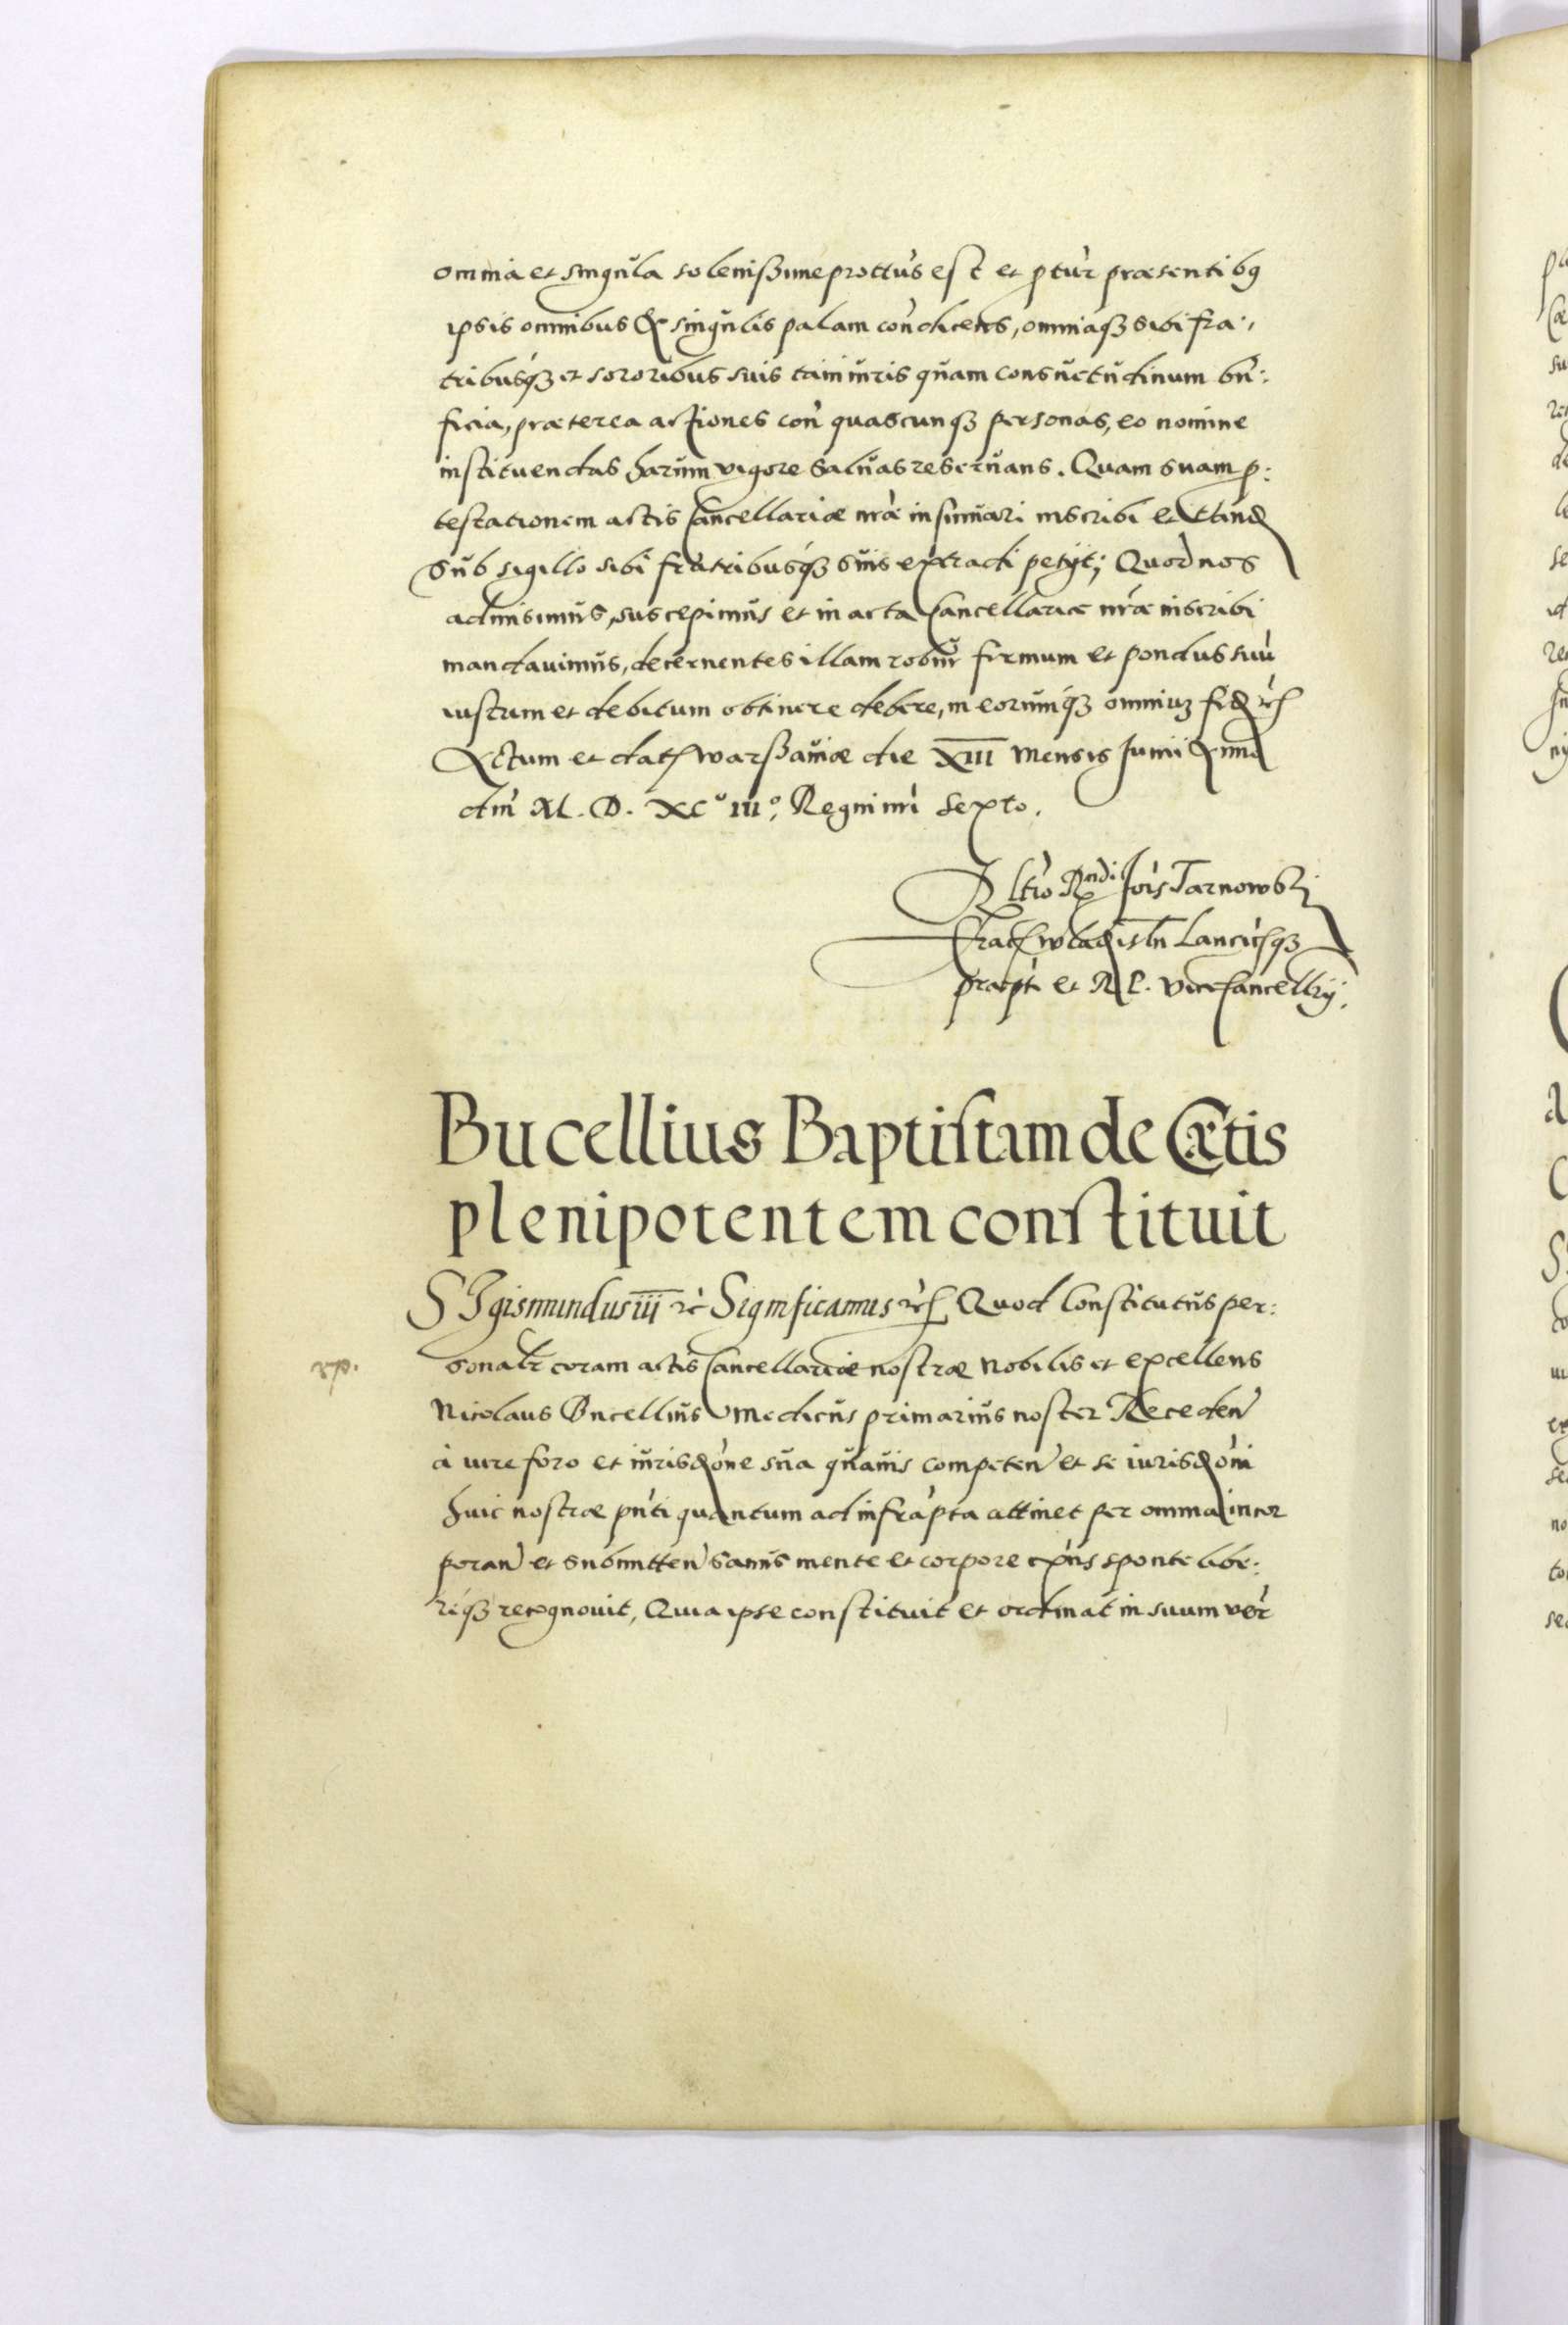 omnia et singula solenissime prottus est et ptur præsentibq
ipsis omnibus & singulis palam con̄dicens, omniaqȝ sibi fra:,
tribusqȝ et sororibus suis tam iuris quam consuetudinum bn̄:
ficia, præterea actiones con̄ quascunqȝ personas, eo nomine
instituendas harum vigore saluas reseruans. Quam suam p:
testationem actis Cancellariæ nrāe insinuari inscribi et
sub sigillo sibi fratribusqȝ suis extradi petÿt; Quod nos
admisimus, suscepimus et in acta Cancellariæ nrāe inscribi
mandauimus, decernentes illam robur firmum et pondus suū
iustum et debitum obtinere debere, in eorumqȝ omniuȝ fid
Actum et dat Warßauiæ die XIII mensis Junii Anno
dni M. D. XC° III°, Regni nri sexto.
Rltio Rndi Jois Tarnowski
Crac Wladisln Lancic̄qȝ
præpti et R P. ViceCancellrÿ.
Bucellius Baptistam de Cætis
plenipotentem constituit
SIgismundus iii rc̄ Significamus Quod Constitutus per:
rp.
sonalr coram actis Cancellariæ nostræ Nobilis et excellens
Nicolaus Bucellius Medicus primarius noster Receden̄
à iure foro et iurisdōne sua quauis competen̄ et se iurisdōni
huic nostræ pn̄ti quantum ad infrapta attinet per omnia incor
poran̄ et submitten̄ sanus mente et corpore exn̄s sponte libe:
reqȝ recognouit, Quia ipse constituit et ordinat in suum ver̄